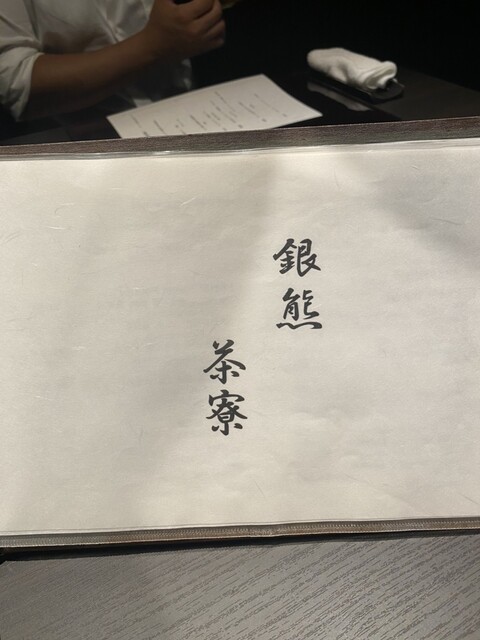 銀熊
茶寮